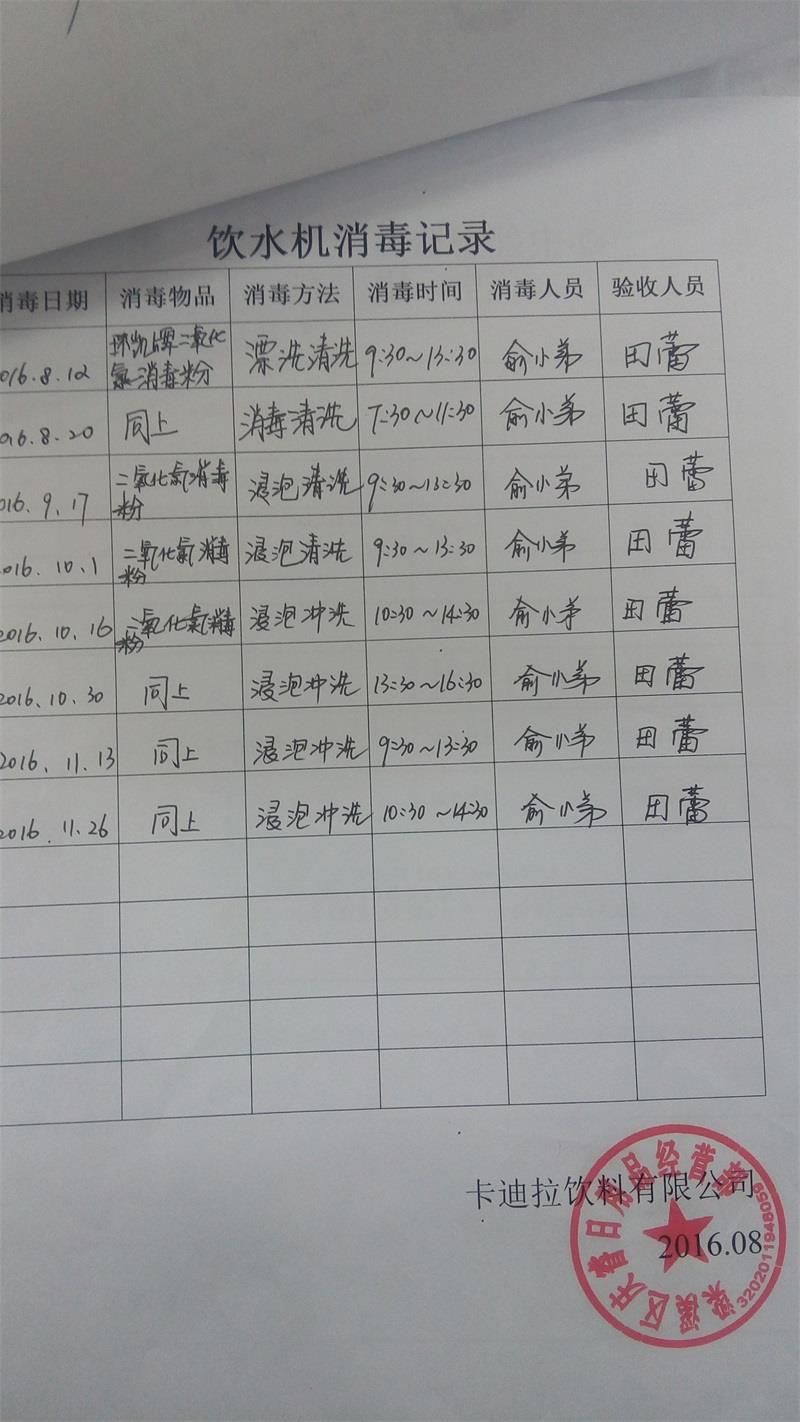 饮水机消毒记录
消毒日期 消毒物品 消毒方法 消毒时间 消毒人员 验收人员
016.8.12 环凯牌二氧化氯消毒粉 漂洗清洗 9:30~13:30 俞小弟 田蕾
016.8.20 同上 消毒清洗 7:30~11:30 俞小弟 田蕾
016.9.17 二氧化氯消毒粉 浸泡清洗 9:30~13:30 俞小弟 田蕾
016.10.1 二氧化氯消毒粉 浸泡清洗 9:30~13:30 俞小弟 田蕾
2016.10.16 二氧化氯消毒粉 浸泡冲洗 10:30~14:30 俞小弟 田蕾
2016.10.30 同上 浸泡冲洗 13:30~16:30 俞小弟 田蕾
2016.11.13 同上 浸泡冲洗 9:30~13:30 俞小弟 田蕾
2016.11.26 同上 浸泡冲洗 10:30~14:30 俞小弟 田蕾
卡迪拉饮料有限公司
2016.08
梁溪区庆春日用品经营部
3202011948059